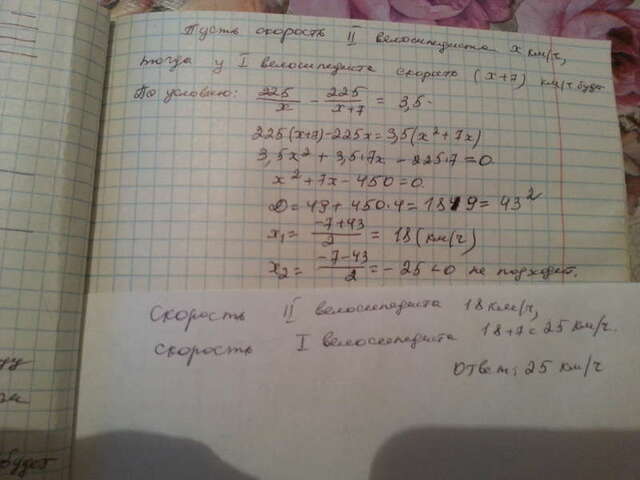 Пусть скорость II велосипедиста x км/ч,
тогда у I велосипедиста скорость (x+7) км/ч будет
По условию: 225/x - 225/x+7 = 3,5.
225(x+7)-225x=3,5(x²+7x)
3,5x²+3,5·7x-225·7=0
x²+7x-450=0
D=49+450·4=1849=43²
x₁= -7+43/2 = 18(км/ч)
x₂= -7-43/2 = -25<0 не подходит.
Скорость II велосипедиста 18 км/ч,
скорость I велосипедиста 18+7=25 км/ч.
Ответ: 25 км/ч
будет